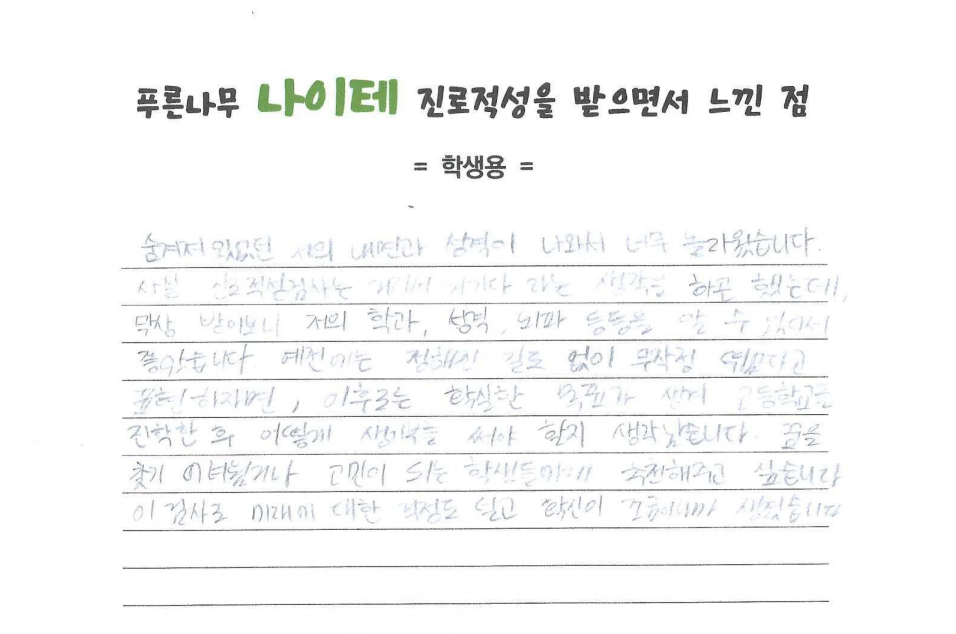 푸른나무 나이테 진로적성을 받으면서 느낀 점
= 학생용 =
숨겨져 있었던 저의 내면과 성격이 나와서 너무 놀라웠습니다.
사실 진로적성검사는 거기서 거기다 라는 생각을 하곤 했는데,
막상 받아보니 저의 학과, 성격, 뇌파 등등을 알 수 있어서
좋았습니다 예전에는 정해진 길도 없이 무작정 뛰었다고
표현하자면, 이후로는 확실한 목표가 생겨 고등학교를
진학한 후 어떻게 생기부를 써야 할지 생각났습니다. 꿈을
찾기 어려웁거나 고민이 되는 학생들에게 추천해주고 싶습니다
이 검사로 미래에 대한 걱정도 덜고 확신이 조금이나마 생겼습니다